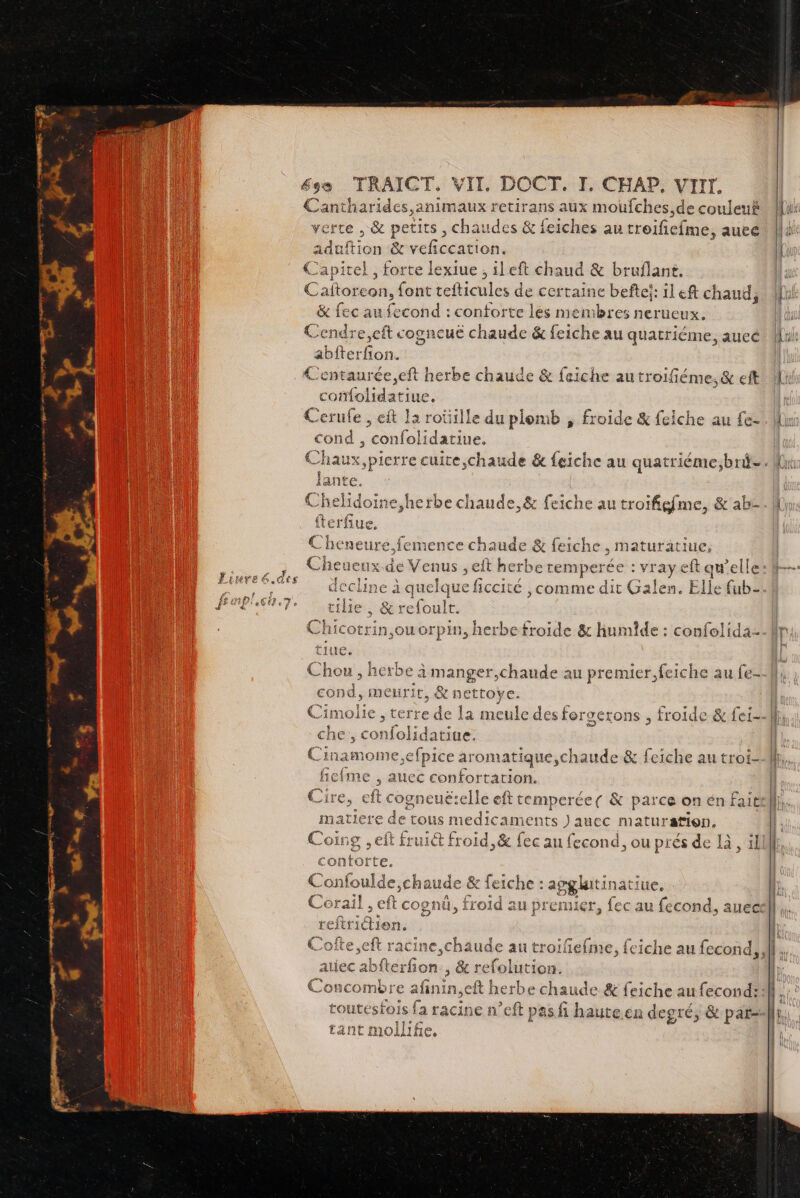 690 TRAICT. VII. DOCT. I. CHAP. VIII.
Cantharides,animaux retirans aux mouſches,de couleur
verte , & petits , chaudes & ſeiches au troiſieſme, auec
aduſtion & veſiccation.
Capitel , forte lexiue , il eſt chaud & bruſlant.
Caſtoreon, ſont teſticules de certaine beſte: il eſt chaud,
& ſec au ſecond : conforte les membres nerueux.
Cendre,eſt cogneuë chaude & ſeiche au quatriéme, auec
abſterſion.
Centaurée,eſt herbe chaude & ſeiche au troiſiéme,& eſt
conſolidatiue.
Ceruſe , eſt la roüille du plomb , froide & ſeiche au ſe-
cond , conſolidatiue.
Chaux,pierre cuite,chaude & ſeiche au quatriéme,brû-
lante.
Chelidoine,herbe chaude,& ſeiche au troiſieſme, & ab-
ſterſiue.
Cheneure,ſemence chaude & ſeiche , maturatiue,
Cheueux de Venus , eſt herbe temperée : vray eſt qu'elle
Liure 6.des
decline à quelque ſiccité , comme dit Galen. Elle ſub-
ſimpl.ch.7.
tilie , & reſoult.
Chicotrin,ou orpin, herbe froide & humide : conſolida-
tiue.
Chou , herbe à manger,chaude au premier,ſeiche au ſe-
cond, meurit, & nettoye.
Cimolie , terre de la meule des forgerons , froide & ſei-
che , conſolidatiue.
Cinamome,eſpice aromatique,chaude & ſeiche au troi-
ſieſme , auec confortation.
Cire, eſt cogneuë:elle eſt temperée ( & parce on en fait
matiere de tous medicaments ) auec maturation.
Coing , eſt fruict froid,& ſec au ſecond, ou prés de là , il
conforte.
Confoulde,chaude & ſeiche : agglutinatiue.
Corail , eſt cognû, froid au premier, ſec au ſecond, auec
reſtriction.
Coſte,eſt racine,chaude au troiſieſme, ſeiche au ſecond,
auec abſterſion , & reſolution.
Concombre aſinin,eſt herbe chaude & ſeiche au ſecond:
toutesfois ſa racine n'eſt pas ſi haute en degré, & par-
tant mollifie.